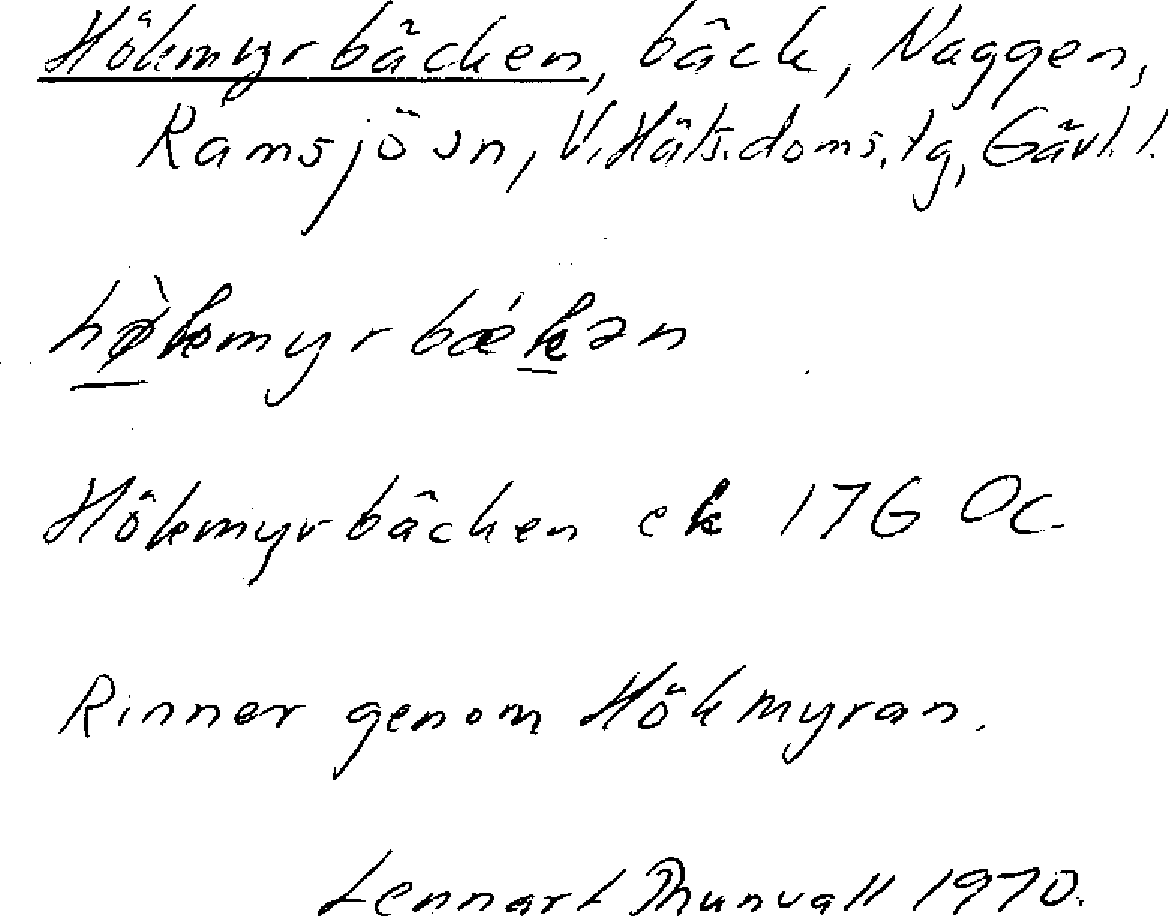 Hökmyrbäcken, bäck, Naggen,
Ramsjö sn, V. Häls. doms. tg, Gävl. l.
hø̀kmyrbǽkən
Hökmyrbäcken ek 17G 0c
Rinner genom Hökmyran.
Lennart Thunvall 1970.